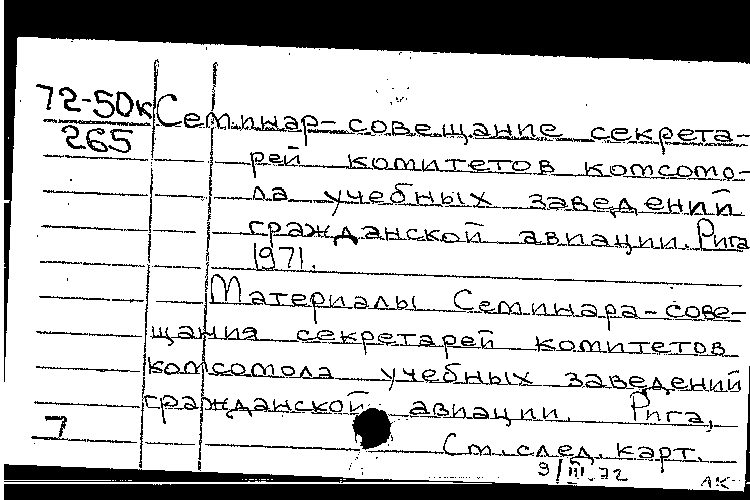 72-50к
265
Семинар-совещание секрета-
рей комитетов комсомо-
ла учебных заведений
гражданской авиации. Рига
1971.
Материалы Семинара-сове-
щания секретарей комитетов
комсомола учебных заведений
гражданской авиации. Рига,
7
См. след. карт.
9/III.72
АК